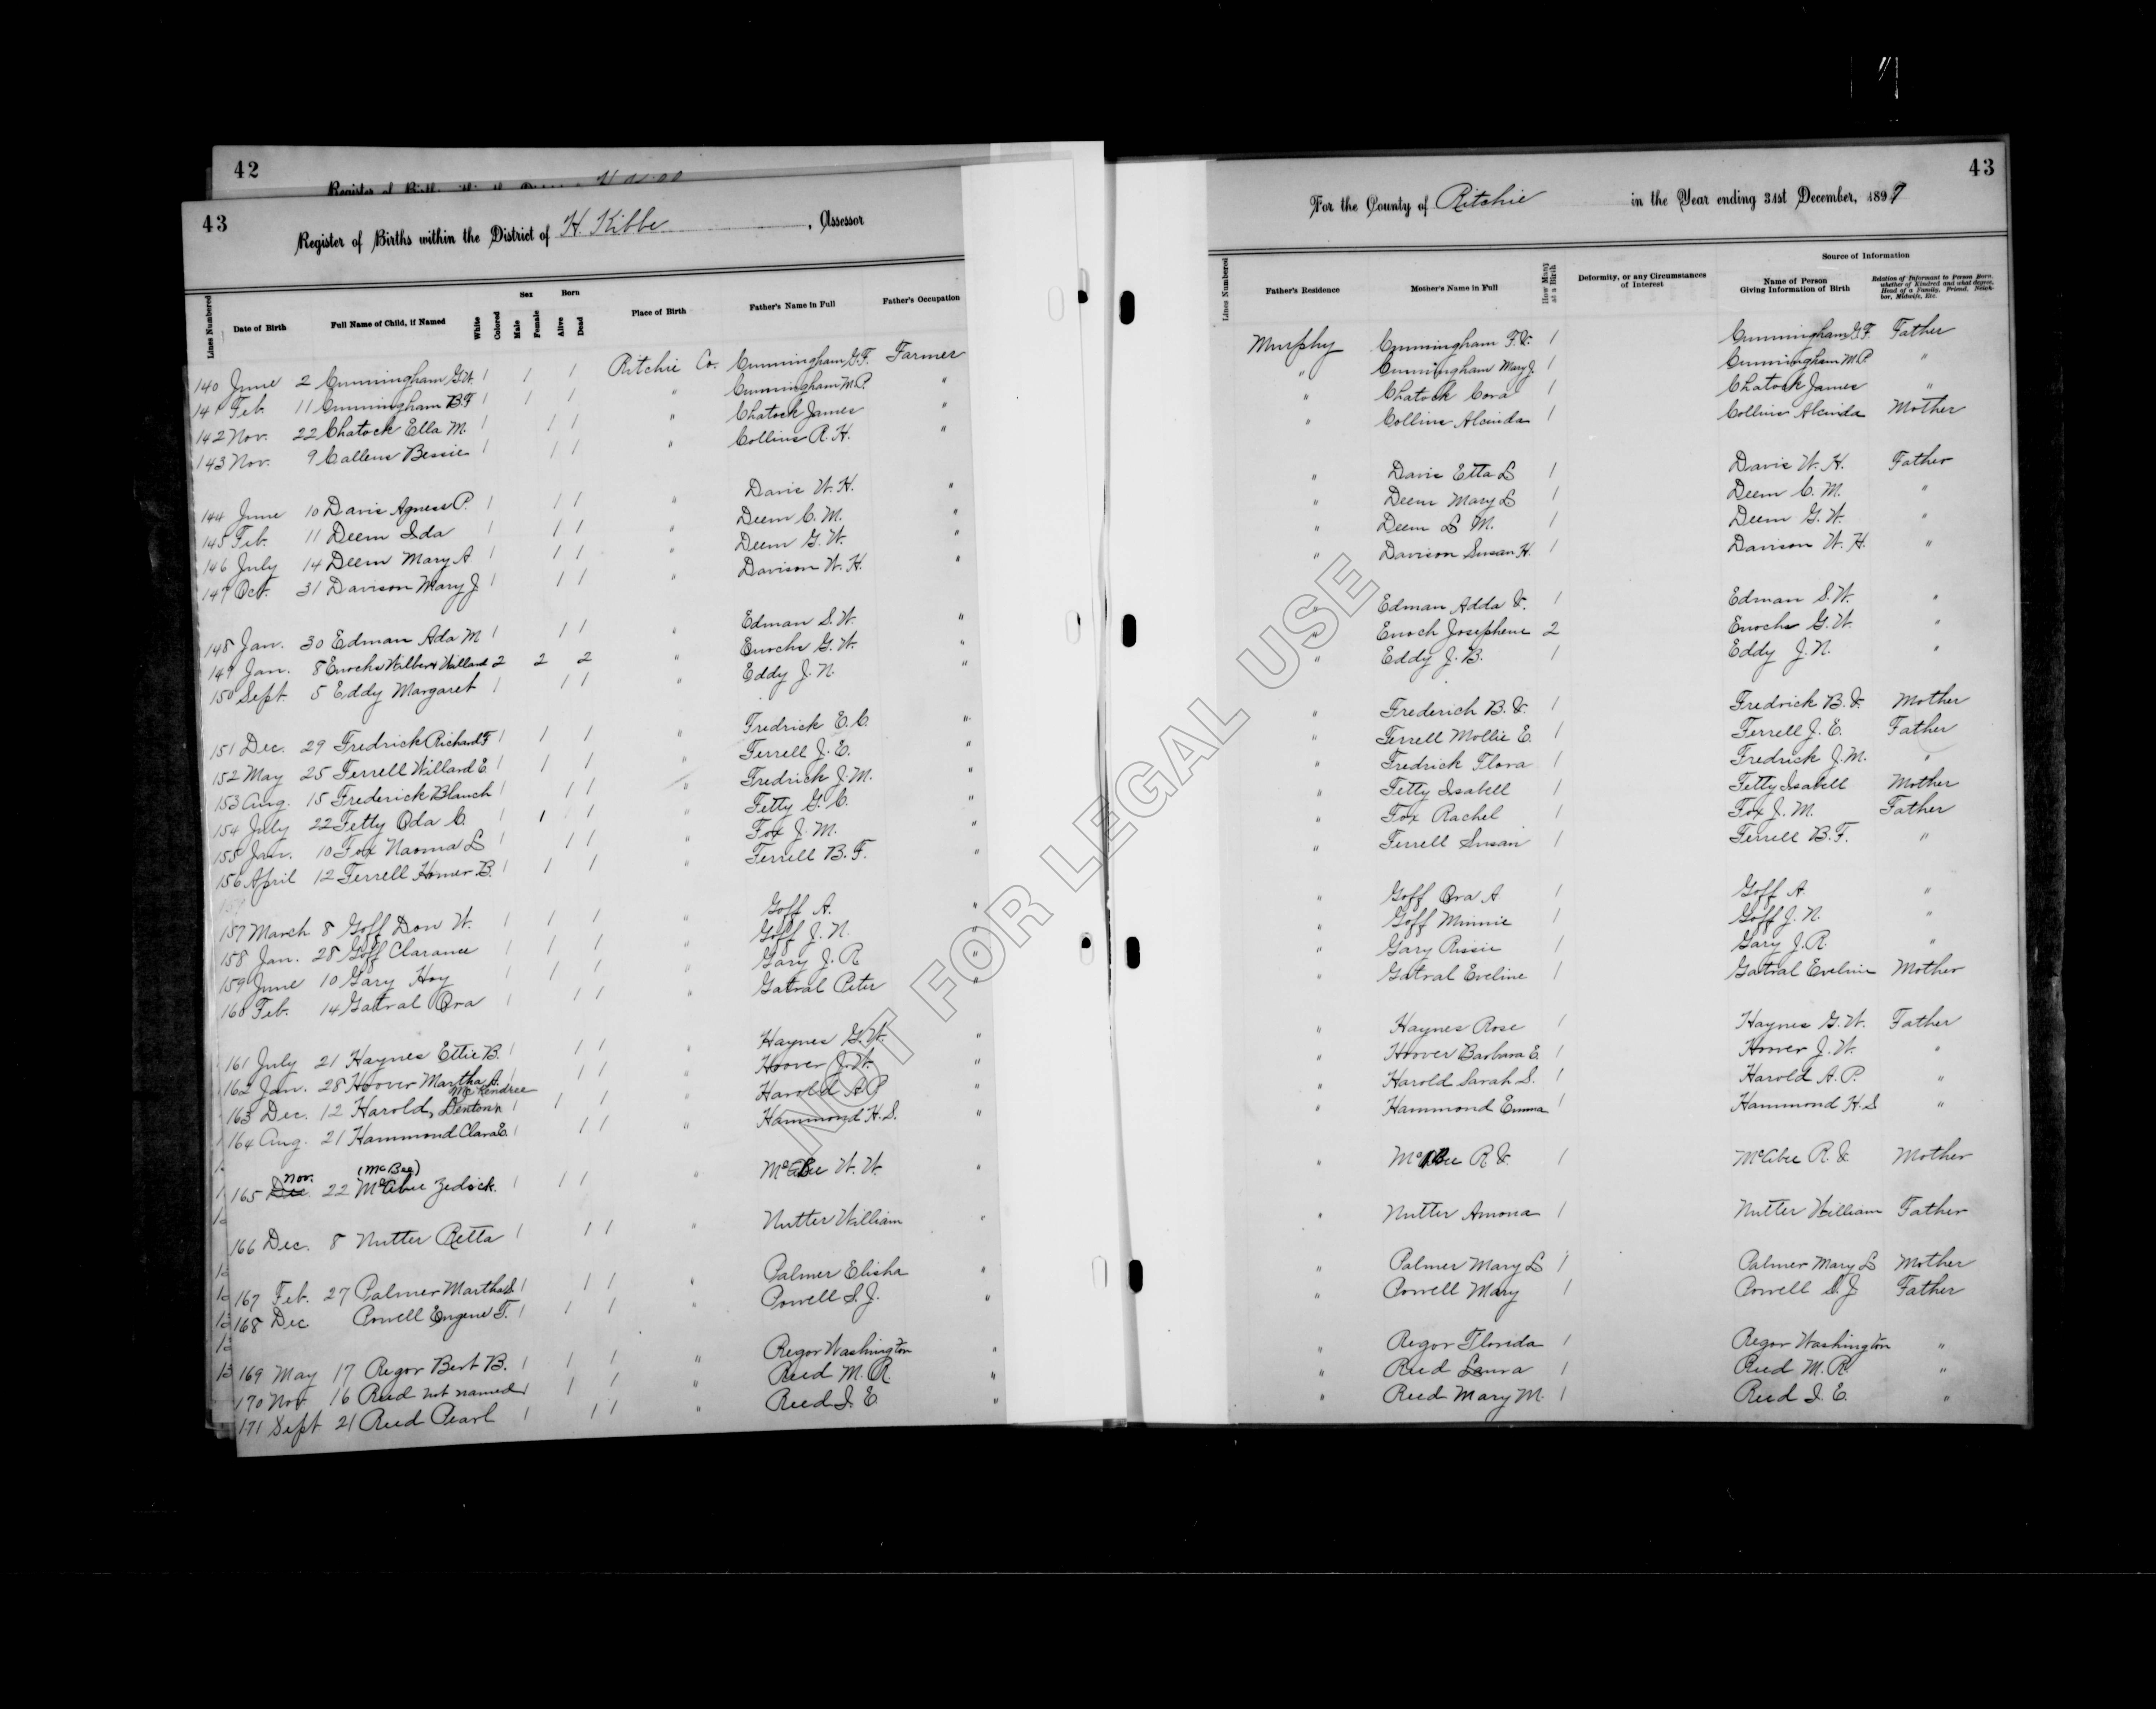 42
43
Register of Births within the District of H. Kibbe, Assessor
Lines Numbered Date of Birth Full Name of Child, if Named White Colored Sex Male Female Born Alive Dead Place of Birth Father's Name in Full Father's Occupation
140 June 2 Cunningham G.W. 1 1 1 Ritchie Co. Cunningham G.F. Farmer
141 Feb. 11 Cunningham B.F 1 1 1 " Cunningham M.P. "
142 Nov. 22 Chatock Ella M. 1 1 1 " Chatock James "
143 Nov. 9 Callens Bessie 1 1 1 " Collins R.H. "
144 June 10 Davis Agness P. 1 1 1 " Davis W.H. "
145 Feb. 11 Deem Ida 1 1 1 " Deem C.M. "
146 July 14 Deem Mary A 1 1 1 " Deem G.W. "
147 Oct. 31 Davison Mary J 1 1 1 " Davison W.H. "
148 Jan. 30 Edman Ada M 1 1 1 " Edman S.W. "
149 Jan. 8 Enochs Wilber & Willard 2 2 2 " Enochs G.W. "
150 Sept. 5 Eddy Margaret 1 1 1 " Eddy J.N. "
151 Dec. 29 Fredrick Richard F 1 1 1 " Fredrick E.C. "
152 May 25 Ferrell Willard E. 1 1 1 " Ferrell J.E. "
153 Aug. 15 Frederick Blanch 1 1 1 " Fredrick J.M. "
154 July 22 Fetty Oda C. 1 1 1 " Fetty G.C. "
155 Jan. 10 Fox Naoma L 1 1 1 " Fox J.M. "
156 April 12 Ferrell Homer B. 1 1 1 " Ferrell B.F. "
157 March 8 Goff Don W. 1 1 1 " Goff A. "
158 Jan. 28 Goff Clarance 1 1 1 " Goff J.N. "
159 June 10 Gary Hoy 1 1 1 " Gary J.R "
160 Feb. 14 Gatral Ora 1 1 1 " Gatral Peter "
161 July 21 Haynes Ettie B. 1 1 1 " Haynes G.W. "
162 Jan. 28 Hoover Martha A. 1 1 1 " Hoover J.W. "
McKendree
163 Dec. 12 Harold, Denton 1 1 1 " Harold A P "
164 Aug. 21 Hammond Clara E. 1 1 1 " Hammond H.S. "
Nov. (McBee)
165 Dec. 22 McAbee Zedick. 1 1 1 " McABee W.W. "
166 Dec. 8 Nutter Retta 1 1 1 " Nutter William "
167 Feb. 27 Palmer Martha S. 1 1 1 " Palmer Elisha "
168 Dec Powell Eugene T. 1 1 1 " Powell S.J. "
169 May 17 Regor Bert B. 1 1 1 " Regor Washington "
170 Nov. 16 Reed not named 1 1 1 " Reed M.R. "
171 Sept 21 Reed Pearl 1 1 1 " Reed I.E. "
43
For the County of Ritchie in the Year ending 31st December, 1897
Source of Information
Lines Numbered Father's Residence Mother's Name in Full How Many at a Birth Deformity, or any Circumstances of Interest Name of Person Giving Information of Birth Relation of Informant to Person Born, whether of Kindred and what degree, Head of a Family, Friend, Neighbor, Midwife, Etc.
Murphy Cunningham F.V. 1 Cunningham G.F. Father
" Cunningham Mary J. 1 Cunningham M.P. "
" Chatock Cora 1 Chatock James "
" Collins Alcinda 1 Collins Alcinda Mother
" Davis Etta L 1 Davis W.H. Father
" Deem Mary L 1 Deem C.M. "
" Deem L M. 1 Deem G.W. "
" Davison Susan H. 1 Davison W.H. "
" Edman Adda V. 1 Edman S.W. "
" Enoch Josephene 2 Enochs G.W. "
" Eddy J.B. 1 Eddy J.N. "
" Frederich B.V. 1 Fredrick B.V. Mother
" Ferrell Mollie E. 1 Ferrell J.E. Father
" Fredrick Flora 1 Fredrick J.M. "
" Fetty Isabell 1 Fetty Isabell Mother
" Fox Rachel 1 Fox J.M. Father
" Ferrell Susan 1 Ferrell B.F. "
" Goff Ora A 1 Goff A. "
" Goff Minnie 1 Goff J.N. "
" Gary Rissie 1 Gary J.R. "
" Gatral Eveline 1 Gatral Eveline Mother
" Haynes Rose 1 Haynes G.W. Father
" Hoover Barbara E. 1 Hoover J.W. "
" Harold Sarah S. 1 Harold A.P. "
" Hammond Emma 1 Hammond H.S "
" McABee R.V. 1 McAbee R.V. Mother
" Nutter Amona 1 Nutter William Father
" Palmer Mary L 1 Palmer Mary L Mother
" Powell Mary 1 Powell S.J. Father
" Regor Florida 1 Regor Washington "
" Reed Laura 1 Reed M.R. "
" Reed Mary M. 1 Reed I.E. "
NOT FOR LEGAL USE